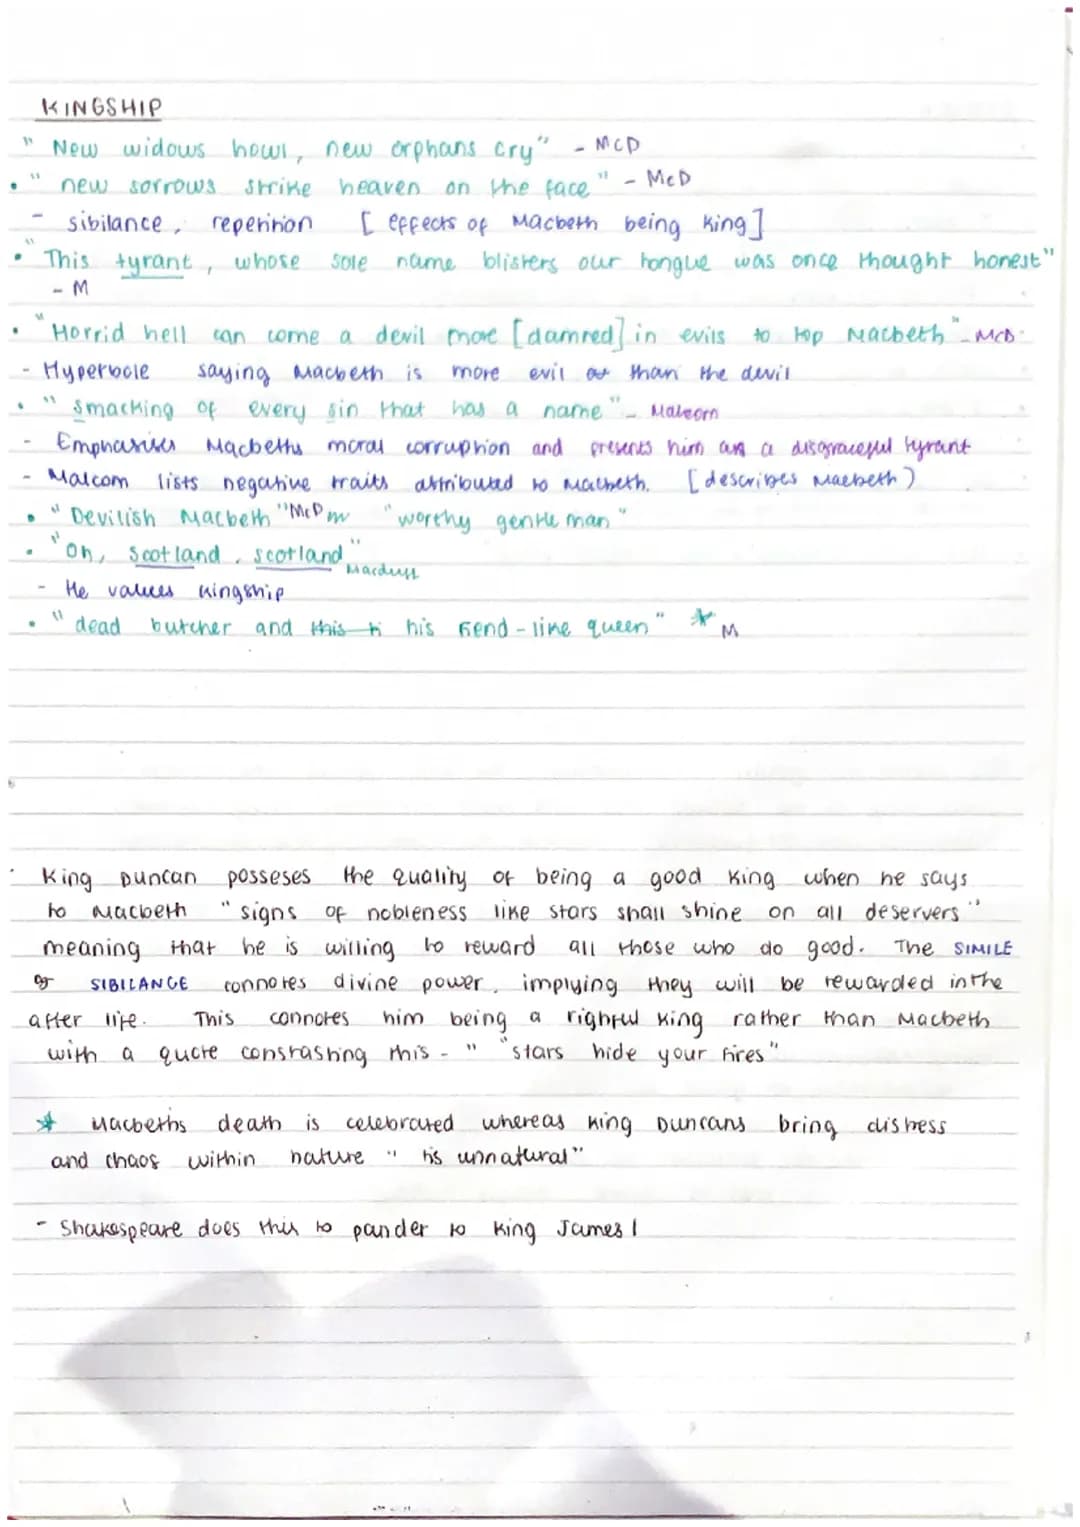 KINGSHIP
" New widows howl, new orphans cry" - McD
• " new sorrows strike heaven on the face" - McD
- sibilance, repetition [effects of Macbeth being king]
• "This tyrant, whose sole name blisters our tongue was once thought honest"
- M
• "Horrid hell can come a devil more [damned] in evils to top Macbeth" - McD
- Hyperbole saying Macbeth is more evil than the devil
• " smacking of every sin that has a name" - Malcom
- Emphasises Macbeths moral corruption and presents him as a disgraceful tyrant
- Malcom lists negative traits attributed to Macbeth. [describes Macbeth)
• " Devilish Macbeth " McD "worthy gentleman"
• "Oh, Scotland, scotland" Macduff
- He values kingship
• " dead butcher and this his fiend-like queen" * M
· King Duncan posseses the quality of being a good king when he says
to Macbeth "signs of nobleness like stars shall shine on all deservers"
meaning that he is willing to reward all those who do good. The SIMILE
SIBILANCE connotes divine power, implying they will be rewarded in the
after life. This connotes him being a rightful king rather than Macbeth
with a quote constrasting this - " "stars hide your fires"
* Macbeths death is celebrated whereas king Duncans bring distress
and chaos within nature " tis unnatural"
- Shakespeare does this to pander to King James I